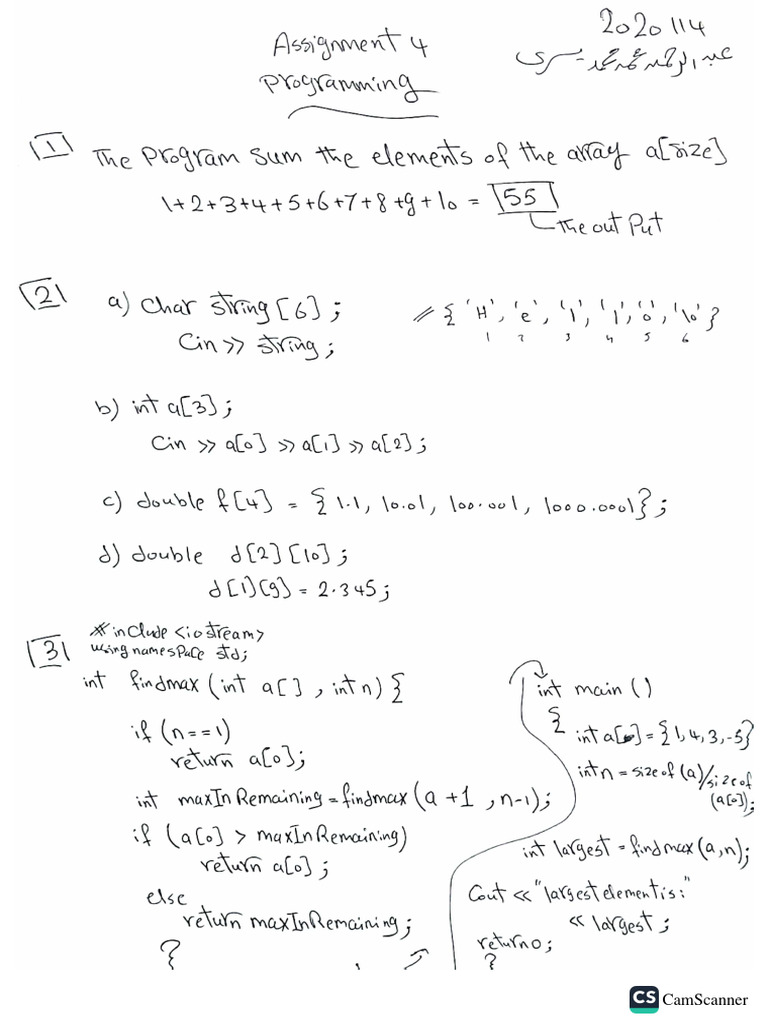 Assignment 4
Programming
2020114
عبدالرحمن محمد محمد يسرى
1
The Program sum the elements of the array a[size]
1+2+3+4+5+6+7+8+9+10 = 55
The out Put
2
a) char string[6]; // {'H', 'e', 'l', 'l', 'o', '\0'}
1 2 3 4 5 6
Cin >> string;
b) int a[3];
Cin >> a[0] >> a[1] >> a[2];
c) double f[4] = {1.1, 10.01, 100.001, 1000.0001};
d) double d[2][10];
d[1][9] = 2.345;
3
#include <iostream>
using namespace std;
int findmax (int a[], int n) {
if (n==1)
return a[0];
int maxInRemaining = findmax(a+1, n-1);
if (a[0] > maxInRemaining)
return a[0];
else
return maxInRemaining;
}
int main ()
{
int a[] = {1,4,3,-5}
int n = size of (a)/size of
(a[0]);
int largest = findmax(a,n);
Cout << "largest element is:"
<< largest;
return 0;
}
CS CamScanner